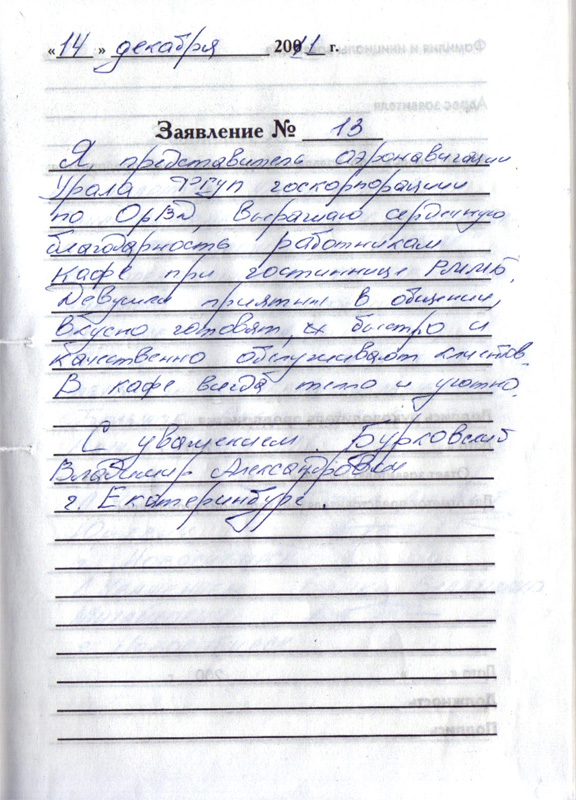 «14» декабря 2011 г.
Заявление № 13
Я, представитель аэронавигации
Урала ФГУП госкорпорации
по ОрВД, выражаю сердечную
благодарность работникам
кафе при гостиннице
Девушки приятны в общении,
вкусно готовят, быстро и
качественно обслуживают клиентов.
В кафе всегда тепло и уютно.
С уважением, Бурковский
Владимир Александрович
г. Екатеринбург.